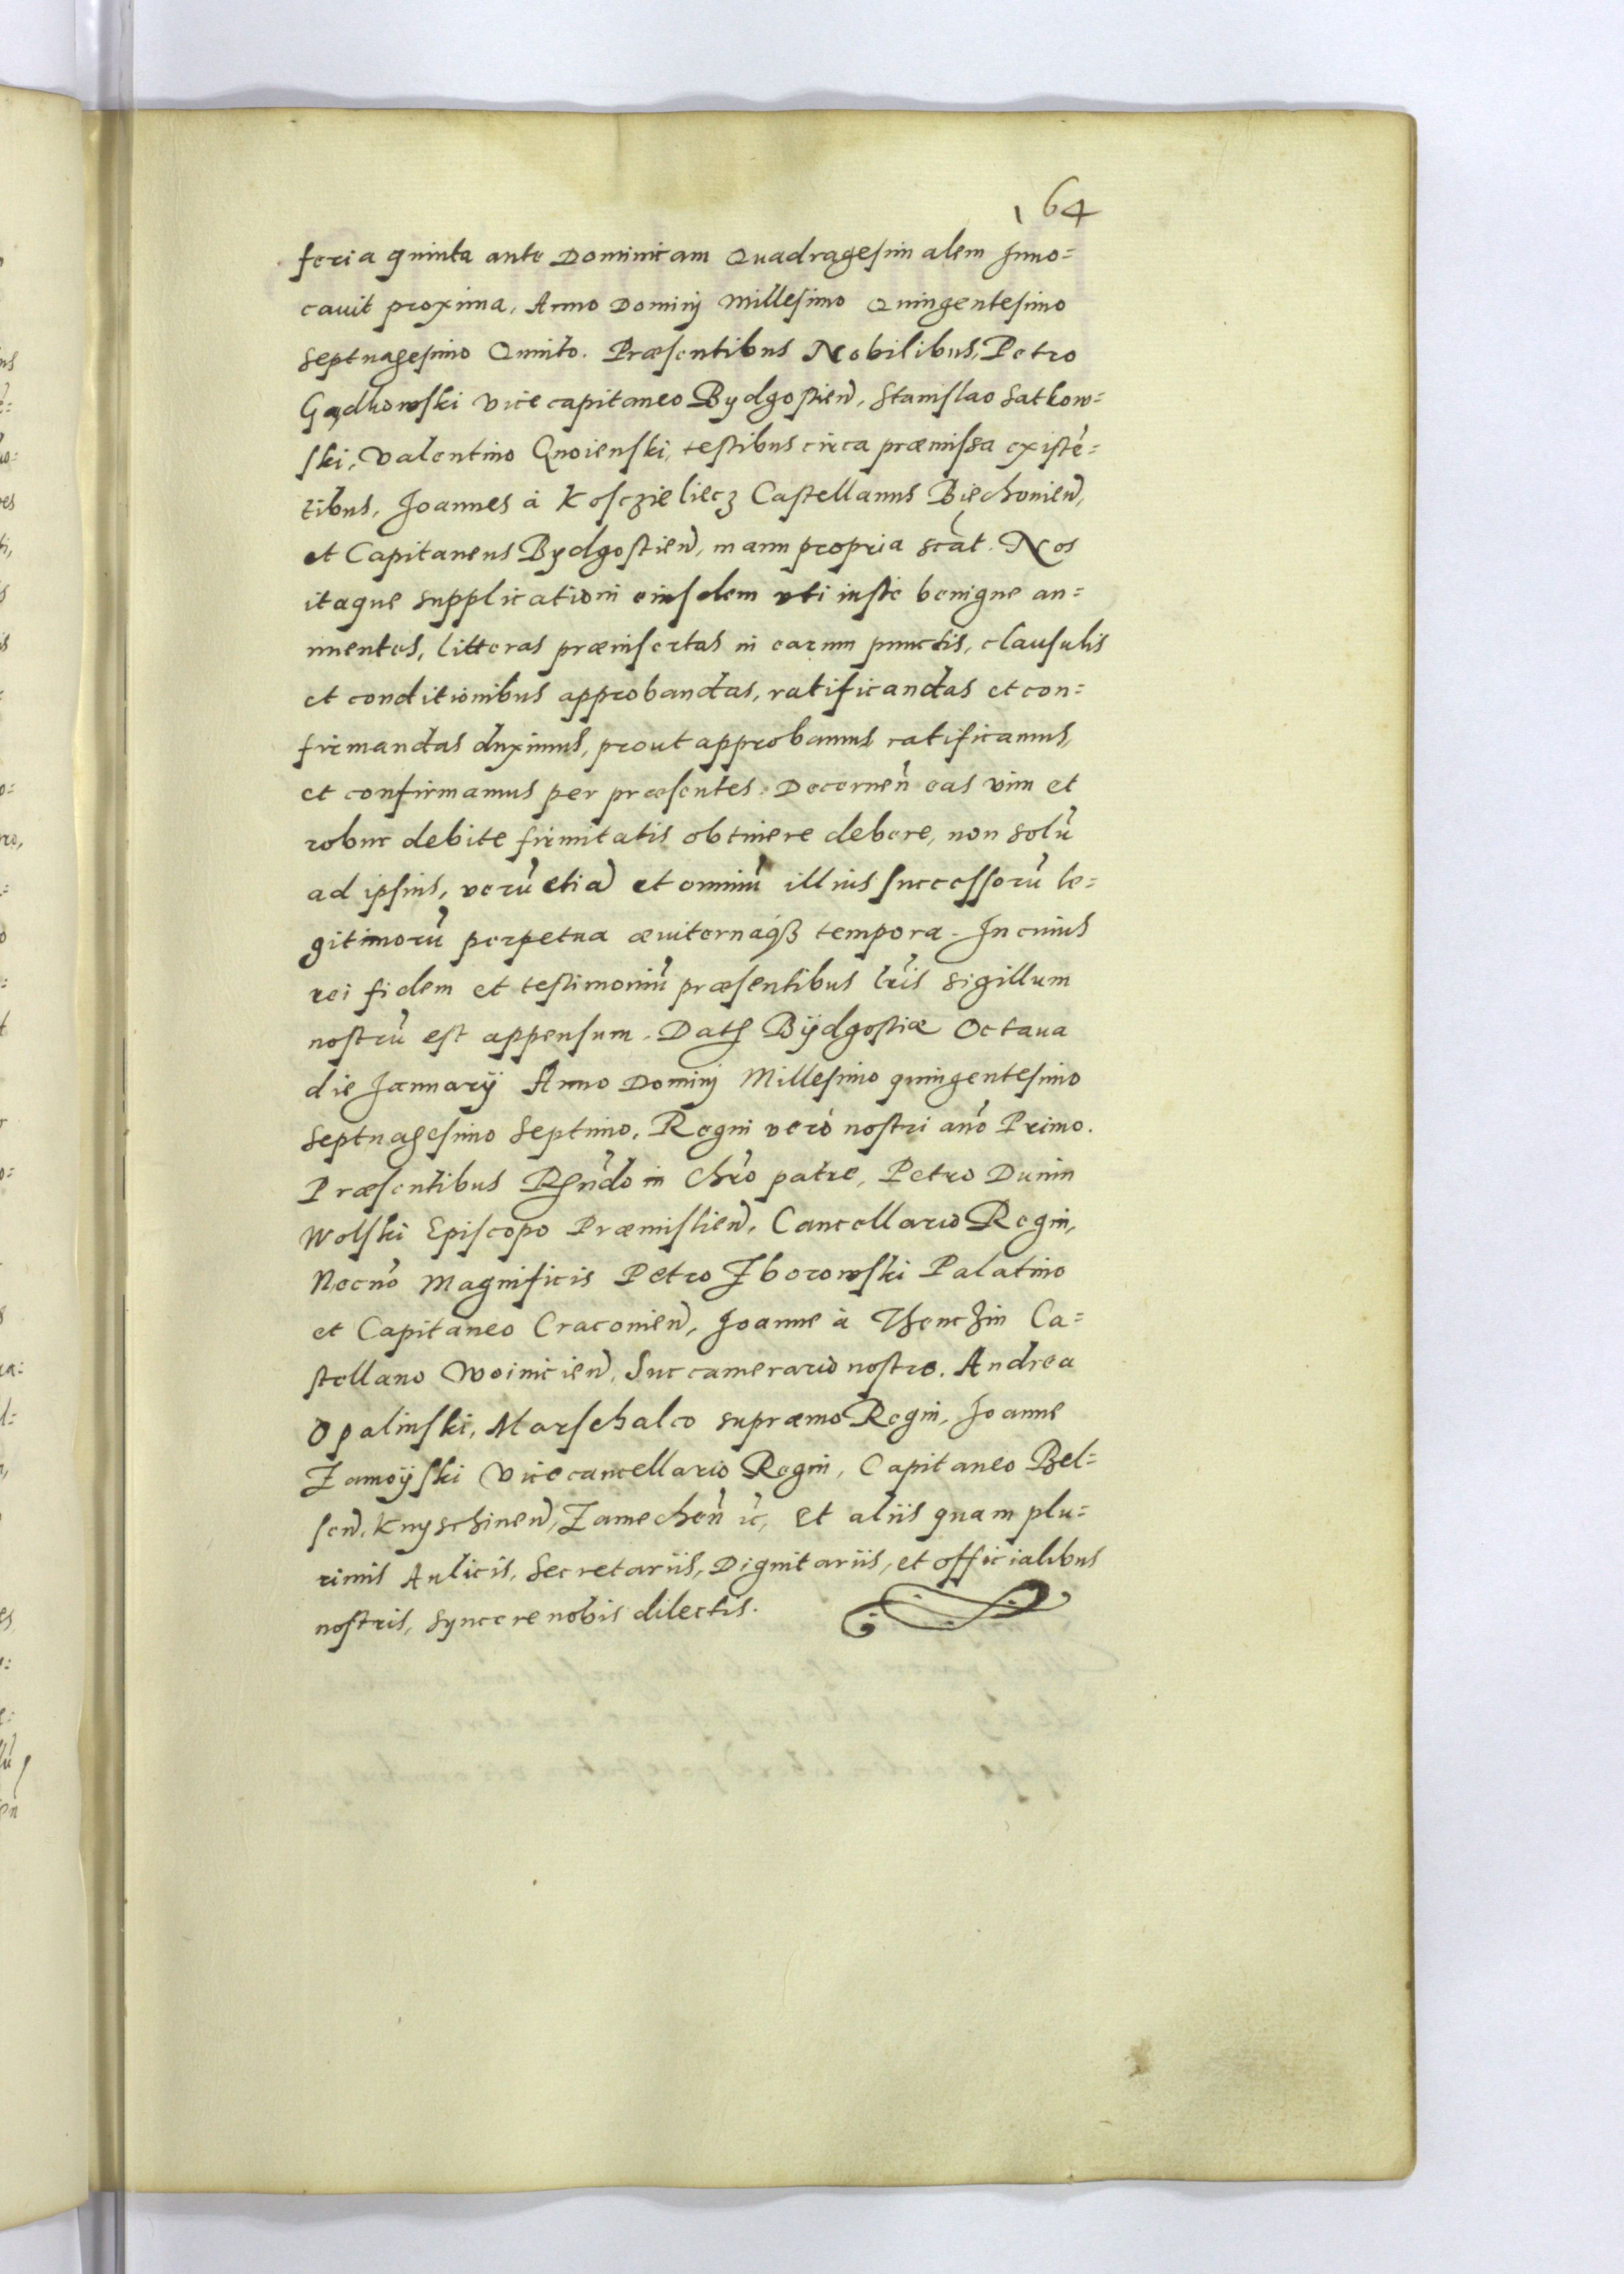 164
feria quinta ante Dominicam Quadragesimalem Inuo=
cauit proxima, Anno Dominj millesimo Quingentesimo
septuagesimo Quinto. Præsentibus Nobilibus, Petro
Gądkowski vice capitaneo Bydgostien̄, Stanislao Satkow=
ski, Valentino Gnoienski, testibus circa præmissa existē=
tibus, Joannes à Kosczieliecz Castellanus Biechonien̄,
et Capitaneus Bydgostien̄, manu propria sc̄at. Nos
itaque supplicationi eiusdem vti iuste benigne an=
nuentes, litteras præinsertas in earum punctis, clausulis
et conditionibus approbandas, ratificandas et con=
firmandas duximus, prout approbamus ratificamus,
et confirmamus per præsentes. Decernen̄ eas vim et
robur debite firmitatis obtinere debere, non solū
ad ipsius, verū etiā et omniū illius successorū le=
gitimorū perpetua æuiternaqꝫ tempora. In cuius
rei fidem et testimoniū præsentibus lr̄is sigillum
nostrū est appensum. Datꝭ Bÿdgostiæ Octaua
die Januarÿ Anno Dominj Millesimo quingentesimo
septuagesimo septimo, Regni verò nostri an̄o Primo.
Præsentibus Rn̄do in Chr̄o patre, Petro Dunin
Wolski Episcopo Præmislien̄, Cancellario Regni,
Necnō Magnificis Petro Zborowski Palatino
et Capitaneo Cracouien̄, Joanne à Thenczin Ca=
stellano Woinicien̄, Succamerario nostro. Andrea
Opalinski, Marschalco supræmo Regni, Joanne
Zamoÿski Vicecancellario Regni, Capitaneo Bel=
sen̄, Knyschinen̄, Zamechen̄ ꝛc, et aliis quam plu=
rimis Aulicis, Secretariis, Dignitariis, et officialibus
nostris, syncere nobis dilectis.